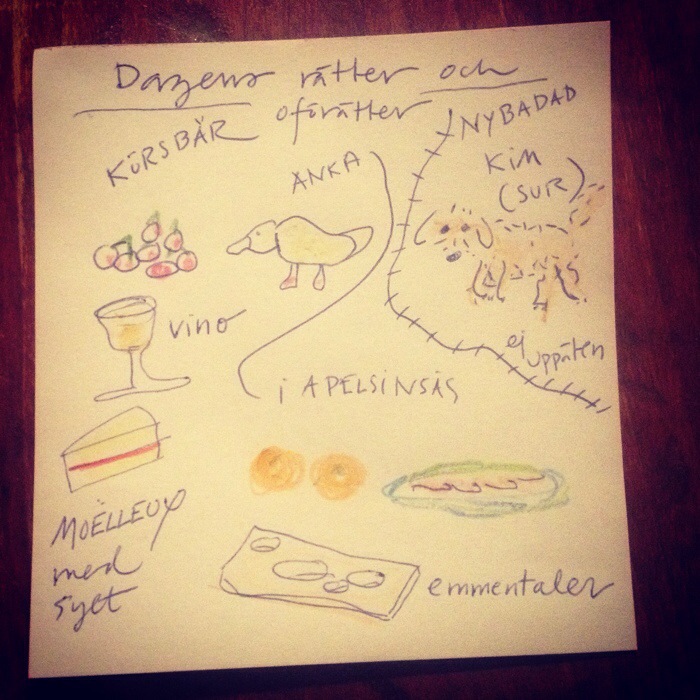 Dagens rätter och
oförätter
KÖRSBÄR
ANKA
NYBADAD
KIM
(SUR)
vino
ej uppäten
i APELSINSÅS
MOËLLEUX
med
sylt
emmentaler